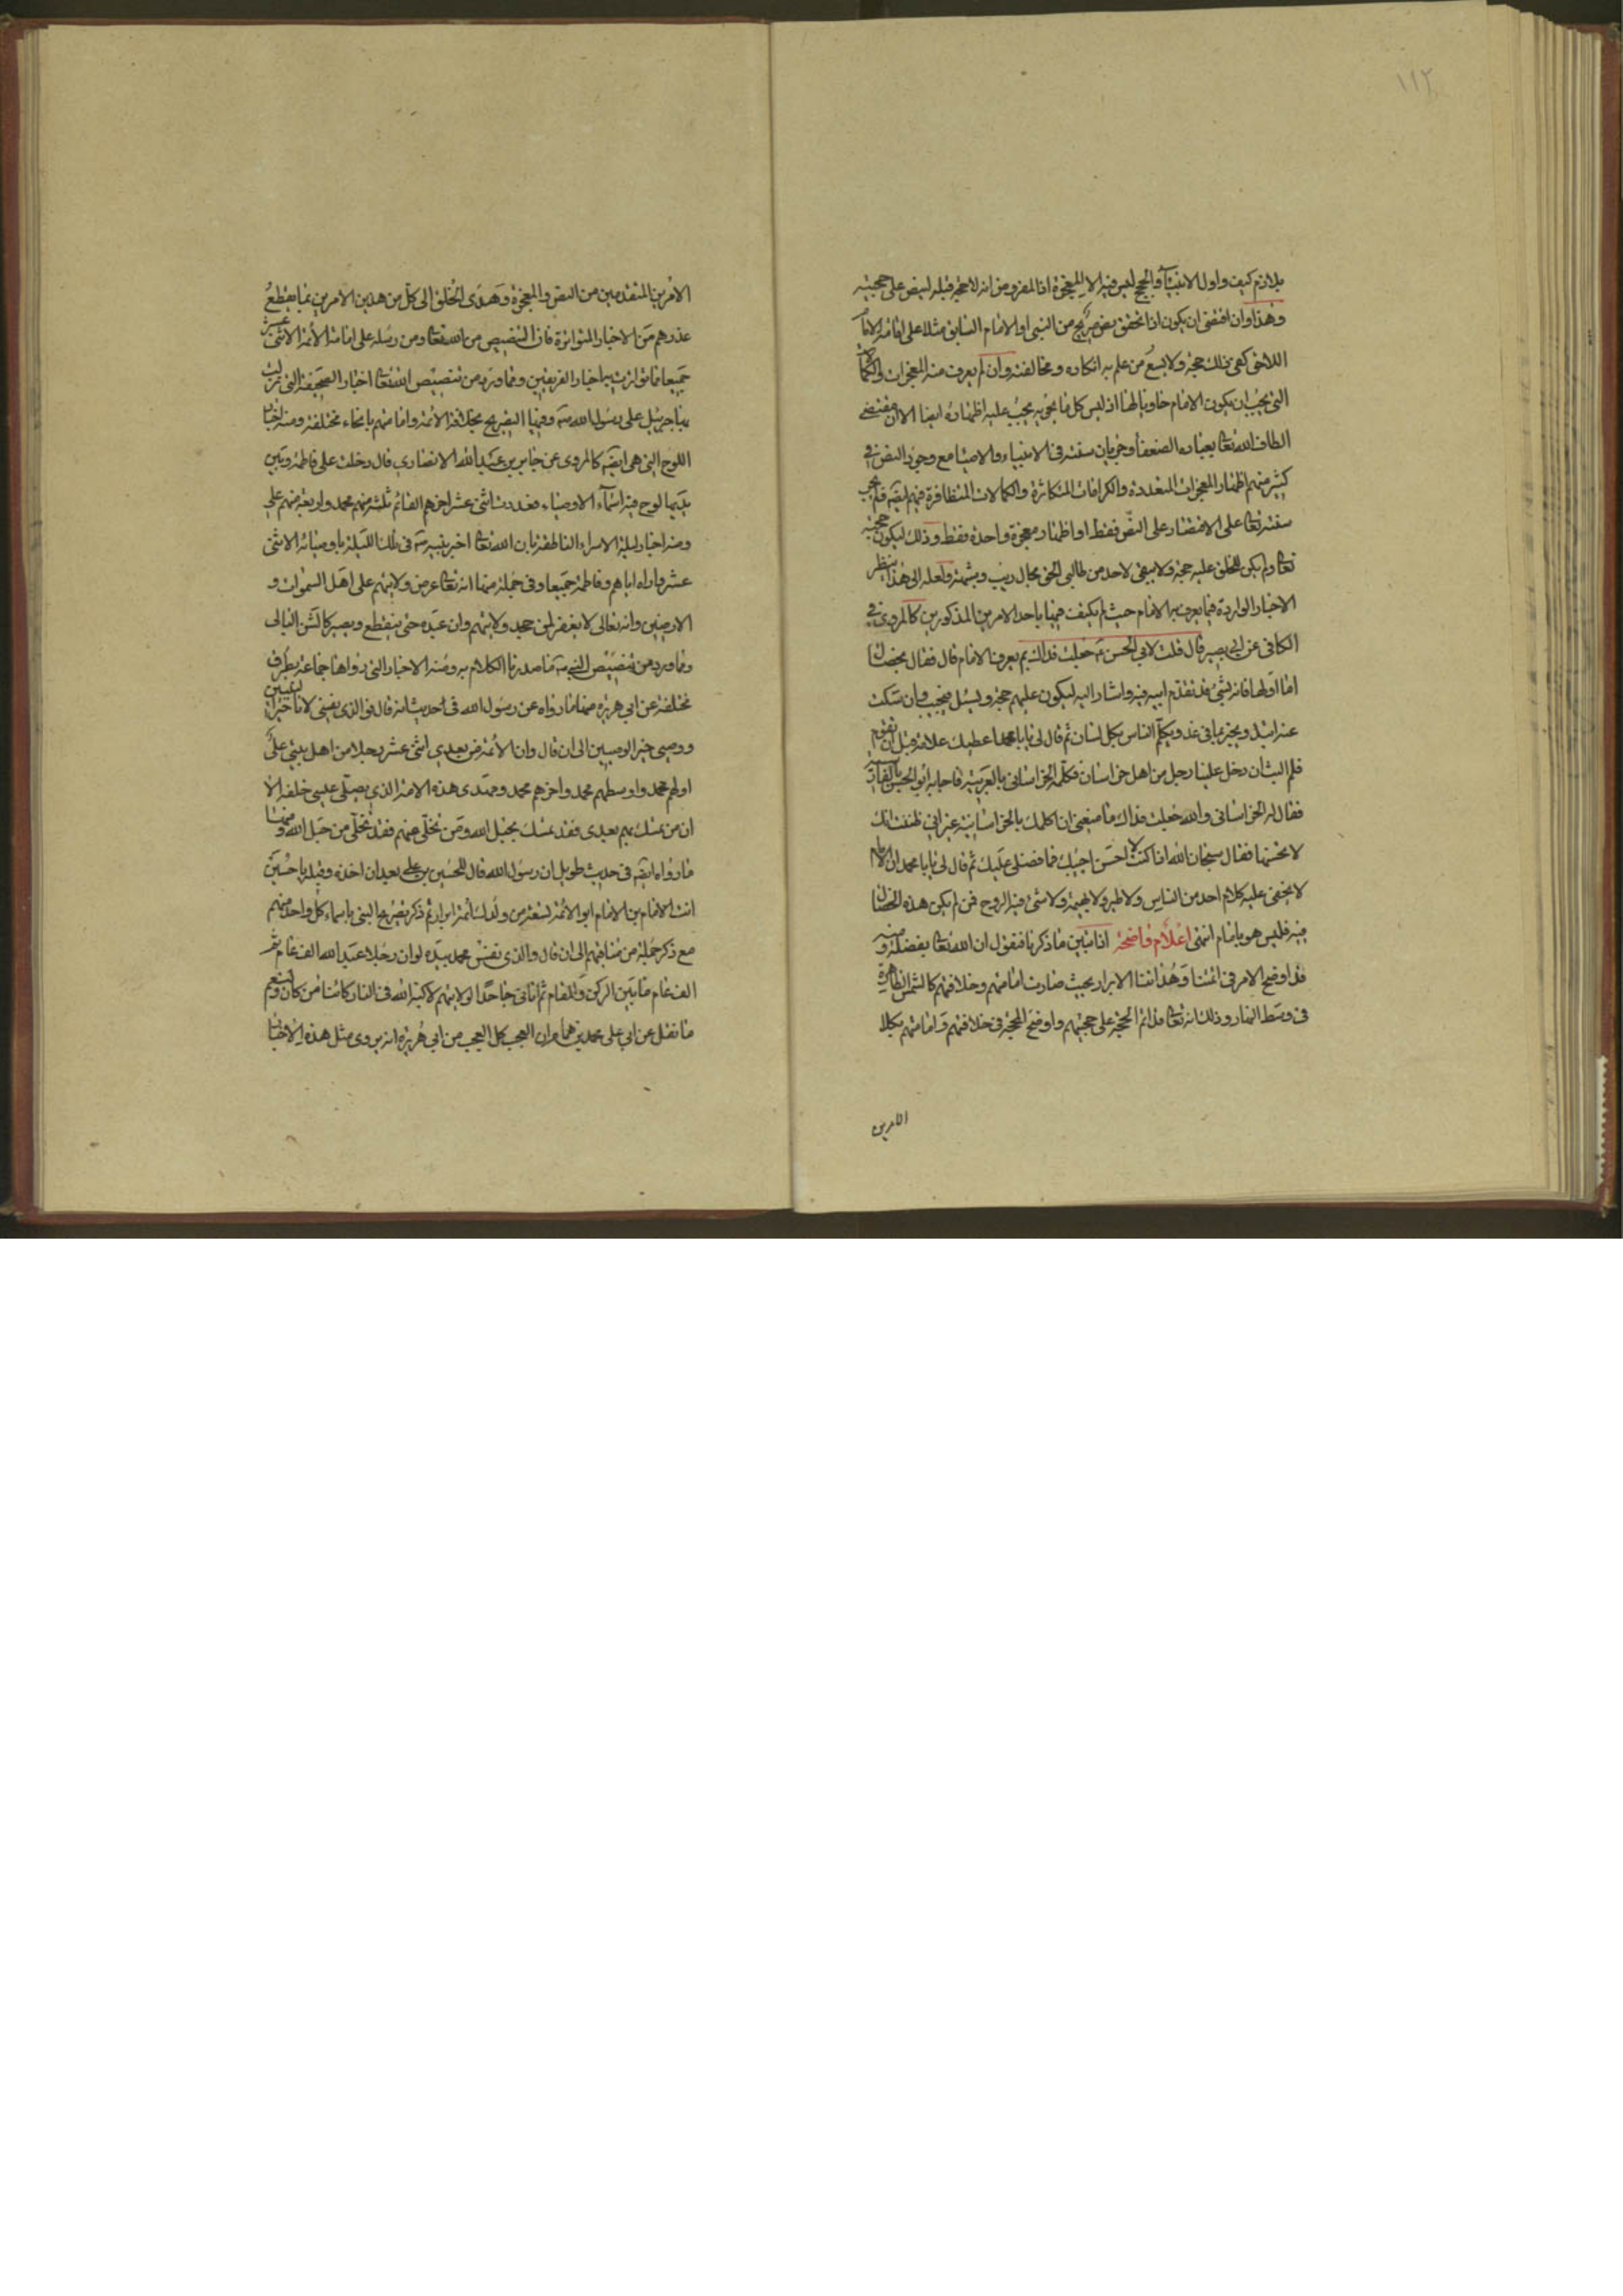 ١١٢
بلازم كيف واول الانبياء والحجج ليس فيه الا المعجزة اذ المفروض انه لا حجة قبله لينص على حجيته
وهذا وان اقتضى ان يكون اذا تحقق نص صريح من النبي او الامام السابق مثلا على امامة الامام
اللاحق كفى ذلك حجة ولا يسع من علم به انكاره ومخالفته وان لم يعرف منه المعجزات والكمالات
التي يجب ان يكون الامام حاويا لها اذ ليس كل ما يجب عليه اظهاره ايضا الا ان مقتضى
الطاف الله تعا بعباده الضعفا وجريان سنته في الانبياء والاوصيا مع وجود النص في
كثير منهم اظهار المعجزات المتعددة والكرامات المتكاثرة والكمالات المتظافرة فيهم ايضه فلم تجر
سنته تعا على الاقتصار على النص فقط او اظهار معجزة واحدة فقط وذلك ليكون حجته
تعا ولم يكن للخلق عليه حجة ولا يبقى لاحد من طالبي الحق مجال ريب وشبهة ولعله الى هذا ينظر
الاخبار الواردة فيما يعرف به الامام حيث لم يكتف فيها باحد الامرين المذكورين كالمروي في
الكافي عن ابي بصير قال قلت لابي الحسن ع جعلت فداك بم يعرف الامام قال فقال بخصال
اما اولها فانه بشئ قد تقدم من ابيه فيه واشار اليه ليكون عليهم حجة ويسئل فيجيب وان سكت
عنه ابتدا ويخبر بما في غد ويكلم الناس بكل لسان ثم قال لي يا با محمد اعطيك علامة قبل ان تقوم
فلم البث ان دخل علينا رجل من اهل خراسان فكلمه الخراساني بالعربية فاجابه ابو الحسن بالفارسية
فقال له الخراساني والله جعلت فداك ما منعني ان اكلمك بالخراسانية غير اني ظننت انك
لا تحسنها فقال سبحان الله اذا كنت لا احسن اجيبك فما فضلي عليك ثم قال لي يا با محمد ان الامام
لا يخفى عليه كلام احد من الناس ولا طير ولا بهيمة ولا شئ فيه الروح فمن لم يكن هذه الخصال
فيه فليس هو بامام انتهى اعلام واضحة اذا تبين ما ذكرنا فنقول ان الله تعا بفضله ومنه
قد اوضح الامر في ائمتنا وهداتنا الابرار بحيث صارت امامتهم وخلافتهم كالشمس الظاهرة
في وسط النهار وذلك انه تعا قد اتم الحجة على حجيتهم واوضح المحجة في خلافتهم وامامتهم بكلا
الامرين
الامرين المتقدمين من النص والمعجزة وهدى الخلق الى كل من هذين الامرين بما يقطع
عذرهم من الاخبار المتواترة فان التنصيص من الله تعا ومن رسله على امامة الأئمة الاثنى عشر
جميعا مما تواترت به اخبار الفريقين ومما ورد من تنصيص الله تعا اخبار الصحيفة التي نزلت
بها جبرئيل على رسول الله ص وفيها التصريح بخلافة الأئمة وامامتهم بانحاء مختلفة ومنه اخبار
اللوح التي هي ايضه كالمروي عن جابر بن عبد الله الانصاري قال دخلت على فاطمة وبين
يديها لوح فيه اسماء الاوصياء فعددت اثنى عشر اخرهم القائم ثلثة منهم محمد واربعة منهم علي
ومنه اخبار ليلة الاسراء الناطقة بان الله تعا اخبر نبيه ص في تلك الليلة باوصيائه الاثنى
عشر واراه اياهم وفاطمة جميعا وفي جملة منها انه تعا عرض ولايتهم على اهل السموات و
الارضين وانه تعالى لا يغفر لمن جحد ولايتهم وان عبده حتى ينقطع ويصير كالشن البالي
ومما ورد من تنصيص النبي ص ما صدرنا الكلام به ومنه الاخبار التي رواها جماعة بطرق
مختلفة عن ابي هريرة منها ما رواه عن رسول الله في حديث انه قال فو الذي نفسي لانا خير النبيين
ووصيي خير الوصيين الى ان قال وان الأئمة من بعدي اثنى عشر رجلا من اهل بيتي علي
اولهم محمد واوسطهم محمد واخرهم محمد ومهدي هذه الامة الذي يصلي عيسى خلفه الا
ان من تمسك بهم بعدي فقد تمسك بحبل الله ومن تخلى منهم فقد تخلى من حبل الله ومنها
ما رواه ايضه في حديث طويل ان رسول الله قال للحسين بن علي بعد ان اخذه وقبله يا حسين
انت الامام بن الامام ابو الأئمة تسعة من ولدك أئمة ابرار ثم ذكر تصريح النبي باسماء كل واحد منهم
مع ذكر جملة من مناقبهم الى ان قال والذي نفس محمد بيده لو ان رجلا عبد الله الف عام ثم
الف عام ما بين الركن والمقام ثم اتاني جاحدا لولايتهم لاكبه الله في النار كائنا من كان ونعم
ما نقل عن ابي علي محمد بن همام ان العجب كل العجب من ابي هريرة انه يروي مثل هذه الاخبار